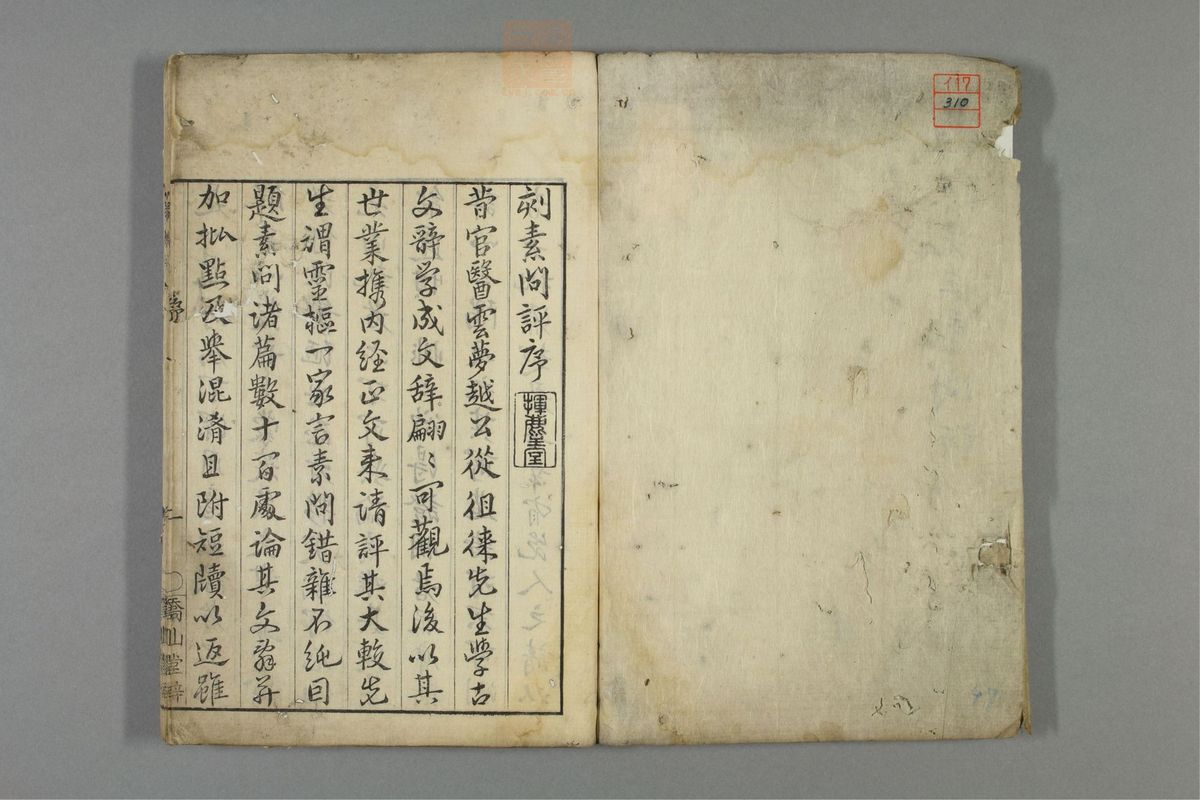 イ17
310
刻素問評序
昔官醫雲夢越公從徂徠先生學古
文辭学成文辞翩〻可觀焉後以其
世業攜内經正文来请評其大較先
生謂靈樞一家言素問錯雜不純因
題素問诸篇數十百處論其文辞并
加批點及举混淆且附短牘以返雖
序